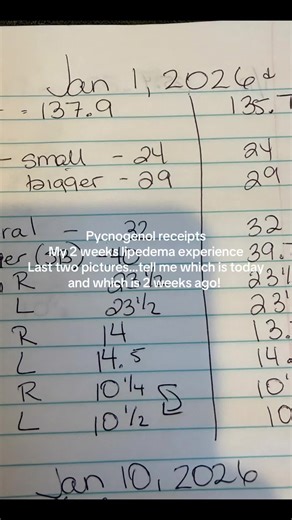 Jan 1, 2026
= 137.9 135.
- small - 24 24
bigger - 29 29
32 32
Pycnogenol receipts
My 2 weeks lipedema experience
Last two pictures...tell me which is today
and which is 2 weeks ago!
39.
R 23 1/2 23 1/
L 23 1/2 23
R 14 13.
L 14.5 14.
R 10 1/4 10
L 10 1/2 10
Jan 10, 2026